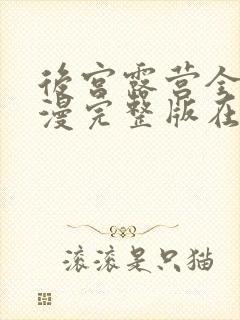 後宫露营全
漫完整版在
滚滚是只猫